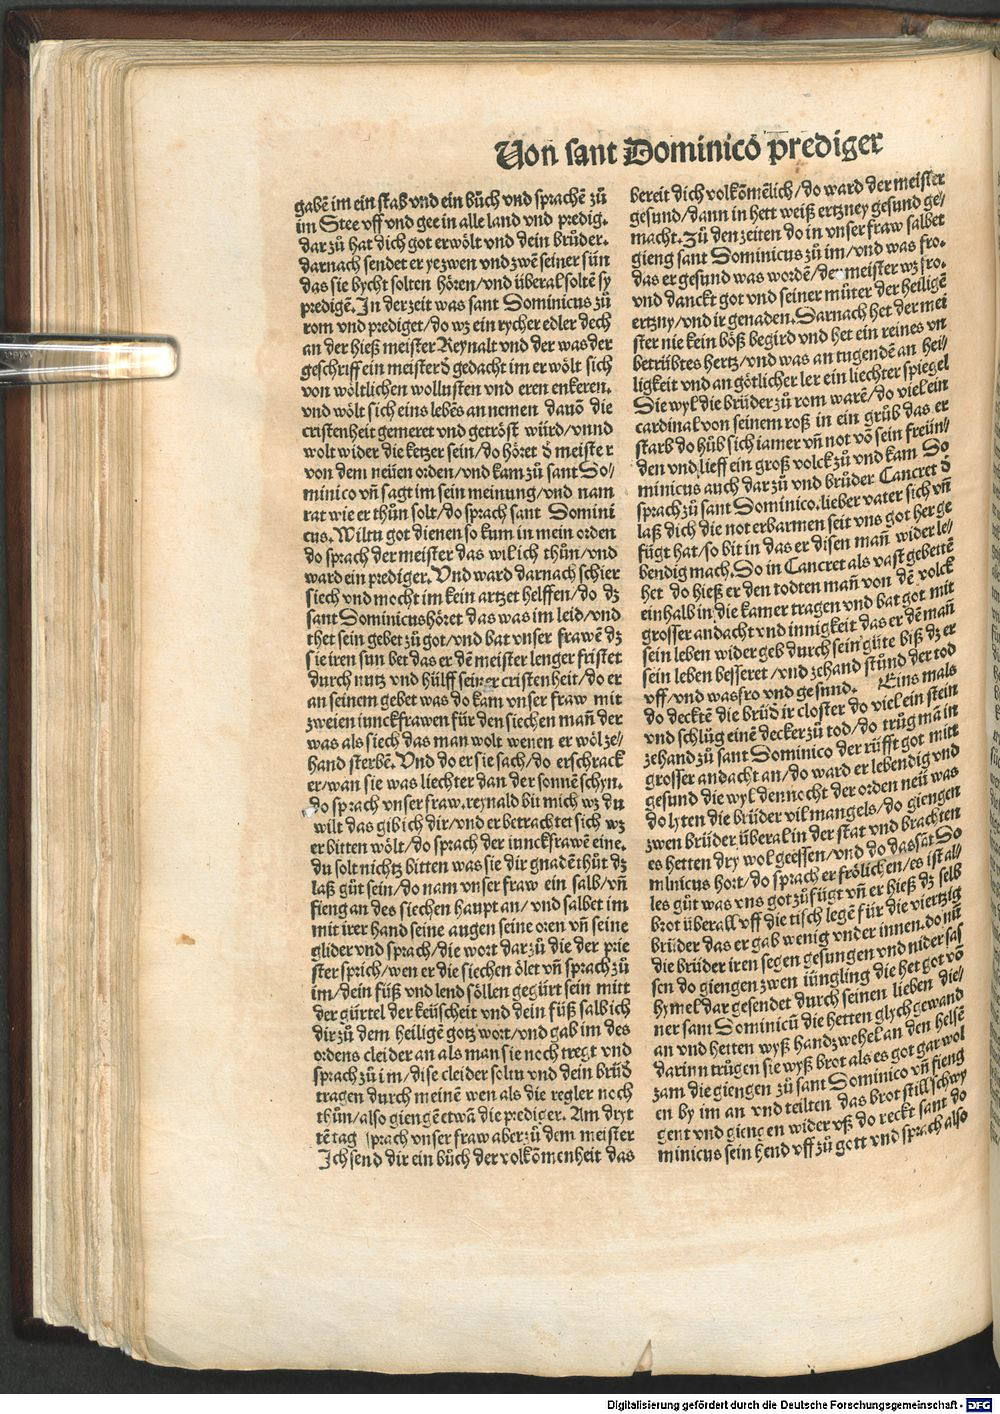 Von sant Dominicō prediger
gabē im ein stab vnd ein bůch vnd sprachē zů
im Stee vff vnd gee in alle land vnd predig.
dar zů hat dich got erwölt vnd dein brůder.
darnach sendet er ye zwen vnd zwē seiner sün
das sie bycht solten hören/vnd überal soltē sy
predigē. In der zeit was sant Dominicus zů
rom vnd prediget/do wz ein rycher edler dech
an der hieß meister Reynalt vnd der was der
geschriff ein meister d̄ gedacht im er wölt sich
von wöltlichen wollusten vnd eren enkeren.
vnd wölt sich eins lebēs an nemen dauō die
cristenheit gemeret vnd getröst würd/vnnd
wolt wider die ketzer sein/do höret d̄ meister
von dem neüen orden/vnd kam zů sant Do/
minico vn̄ sagt im sein meinung/vnd nam
rat wie er thůn solt/do sprach sant Domini
cus. Wiltu got dienen so kum in mein orden
do sprach der meister das wil ich thůn/vnd
ward ein prediger. Vnd ward darnach schier
siech vnd mocht im kein artzet helffen/do dz
sant Dominicus höret das was im leid/vnd
thet sein gebet zů got/vnd bat vnser frawē dz
sie iren sun bet das er dē meister lenger fristet
durch nutz vnd hülff seiner cristenheit/do er
an seinem gebet was do kam vnser fraw mit
zweien iunckfrawen für den siechen man̄ der
was als siech das man wolt wenen er wöl ze/
hand sterbē. Vnd do er sie sach/do erschrack
er/wan sie was liechter dan der sonnē schyn.
do sprach vnser fraw. reynald bit mich wz du
wilt das gib ich dir/vnd er betrachtet sich wz
er bitten wölt/do sprach der iunckfrawē eine.
du solt nichtz bitten was sie dir gnadē thůt dz
laß gůt sein/do nam vnser fraw ein salb/vn̄
fieng an des siechen haupt an/vnd salbet im
mit irer hand seine augen seine oren vn̄ seine
glider vnd sprach/die wort dar zů die der prie
ster sprich/wen er die siechen ölet vn̄ sprach zů
im/dein füß vnd lend söllen gegürt sein mitt
der gürtel der keüscheit vnd dein füß salb ich
dir zů dem heiligē gotz wort/vnd gab im des
ordens cleider an als man sie noch tregt vnd
sprach zů im/dise cleider soltu vnd dein brůd
tragen durch meinē wen als die regler noch
thůn/also giengē etwā die prediger. Am dryt
tē tag sprach vnser fraw aber zů dem meister
Ich send dir ein bůch der volkōmenheit das
bereit dich volkōmēlich/do ward der meister
gesund/dann in hett weiß ertzney gesund ge/
macht. Zů den zeiten do in vnser fraw salbet
gieng sant Dominicus zů im/vnd was fro.
das er gesund was wordē/der meister wz fro.
vnd danckt got vnd seiner můter der heiligē
ertzny/vnd ir genaden. Darnach het der mei
ster nie kein böß begird vnd het ein reines vn
betrübtes hertz/vnd was an tugendē an hei/
ligkeit vnd an götlicher ler ein liechter spiegel
Die wyl die brüder zů rom warē/do viel ein
cardinal von seinem roß in ein grůb das er
starb do hůb sich iamer vn̄ not vō sein freün/
den vnd lieff ein groß volck zů vnd kam Do
minicus auch dar zů vnd brůder Cancret d̄
sprach zů sant Dominico. lieber vater sich vn̄
laß dich die not erbarmen seit vns got her ge
fügt hat/so bit in das er disen man̄ wider le/
bendig mach. Do in Cancret als vast gebettē
het do hieß er den todten man̄ von dē volck
einhalb in die kamer tragen vnd bat got mit
grosser andacht vnd innigkeit das er dē man̄
sein leben wider geb durch sein güte biß dz er
sein leben besseret/vnd zehand stůnd der tod
vff/vnd was fro vnd gesund. Eins mals
do decktē die brůd ir closter do viel ein stein
vnd schlůg einē decker zů tod/do trůg mā in
zehand zů sant Dominico der růfft got mitt
grosser andacht an/do ward er lebendig vnd
gesund die wyl dennocht der orden neü was
do lyten die brüder vil mangels/do giengen
zwen brüder überal in der stat vnd brachten
es hetten dry wol geessen/vnd do das sāt Do
minicus hort/do sprach er frölichen/es ist al/
les gůt was vns got zůfügt vn̄ er hieß dz selb
brot überall vff die tisch legē für die viertzig
brüder das er gab wenig vnder innen. do nū
die brüder iren segen gesungen vnd nider sas
sen do giengen zwen iüngling die het got vō
hymel dar gesendet durch seinen lieben die/
ner sant Dominicū die hetten glych gewand
an vnd hetten wyß handzwehel an den helsē
darinn trůgen sie wyß brot als es got gar wol
zam die giengen zů sant Dominico vn̄ fieng
en by im an vnd teilten das brot still schwy
gent vnd giengen wider vß do reckt sant do
minicus sein hend vff zů gott vnd sprach also
Digitalisierung gefördert durch die Deutsche Forschungsgemeinschaft - DFG